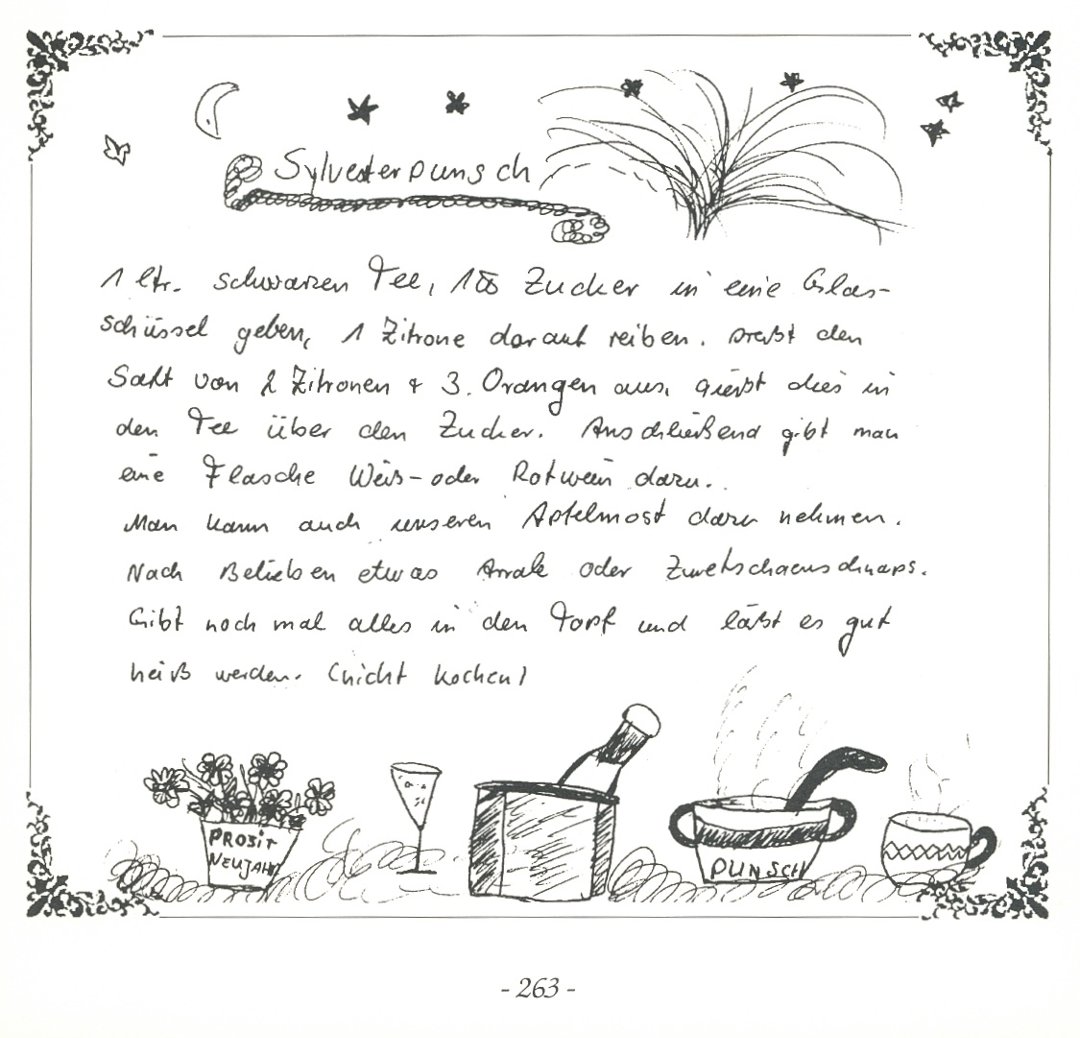 Sylvesterpunsch
1 ltr. schwarzen Tee, Zucker in eine Glas-
schüssel geben, 1 Zitrone darauf reiben. preßt den
Saft von 2 Zitronen + 3 Orangen aus, gießt dies in
den Tee über den Zucker. Anschließend gibt man
eine Flasche Weis- oder Rotwein dazu.
Man kann auch unseren Apfelmost dazu nehmen.
Nach Belieben etwas Arrak oder
Gibt noch mal alles in den Topf und läßt es gut
heiß werden. (nicht kochen)
PROSIT
NEUJAHR
PUNSCH
- 263 -